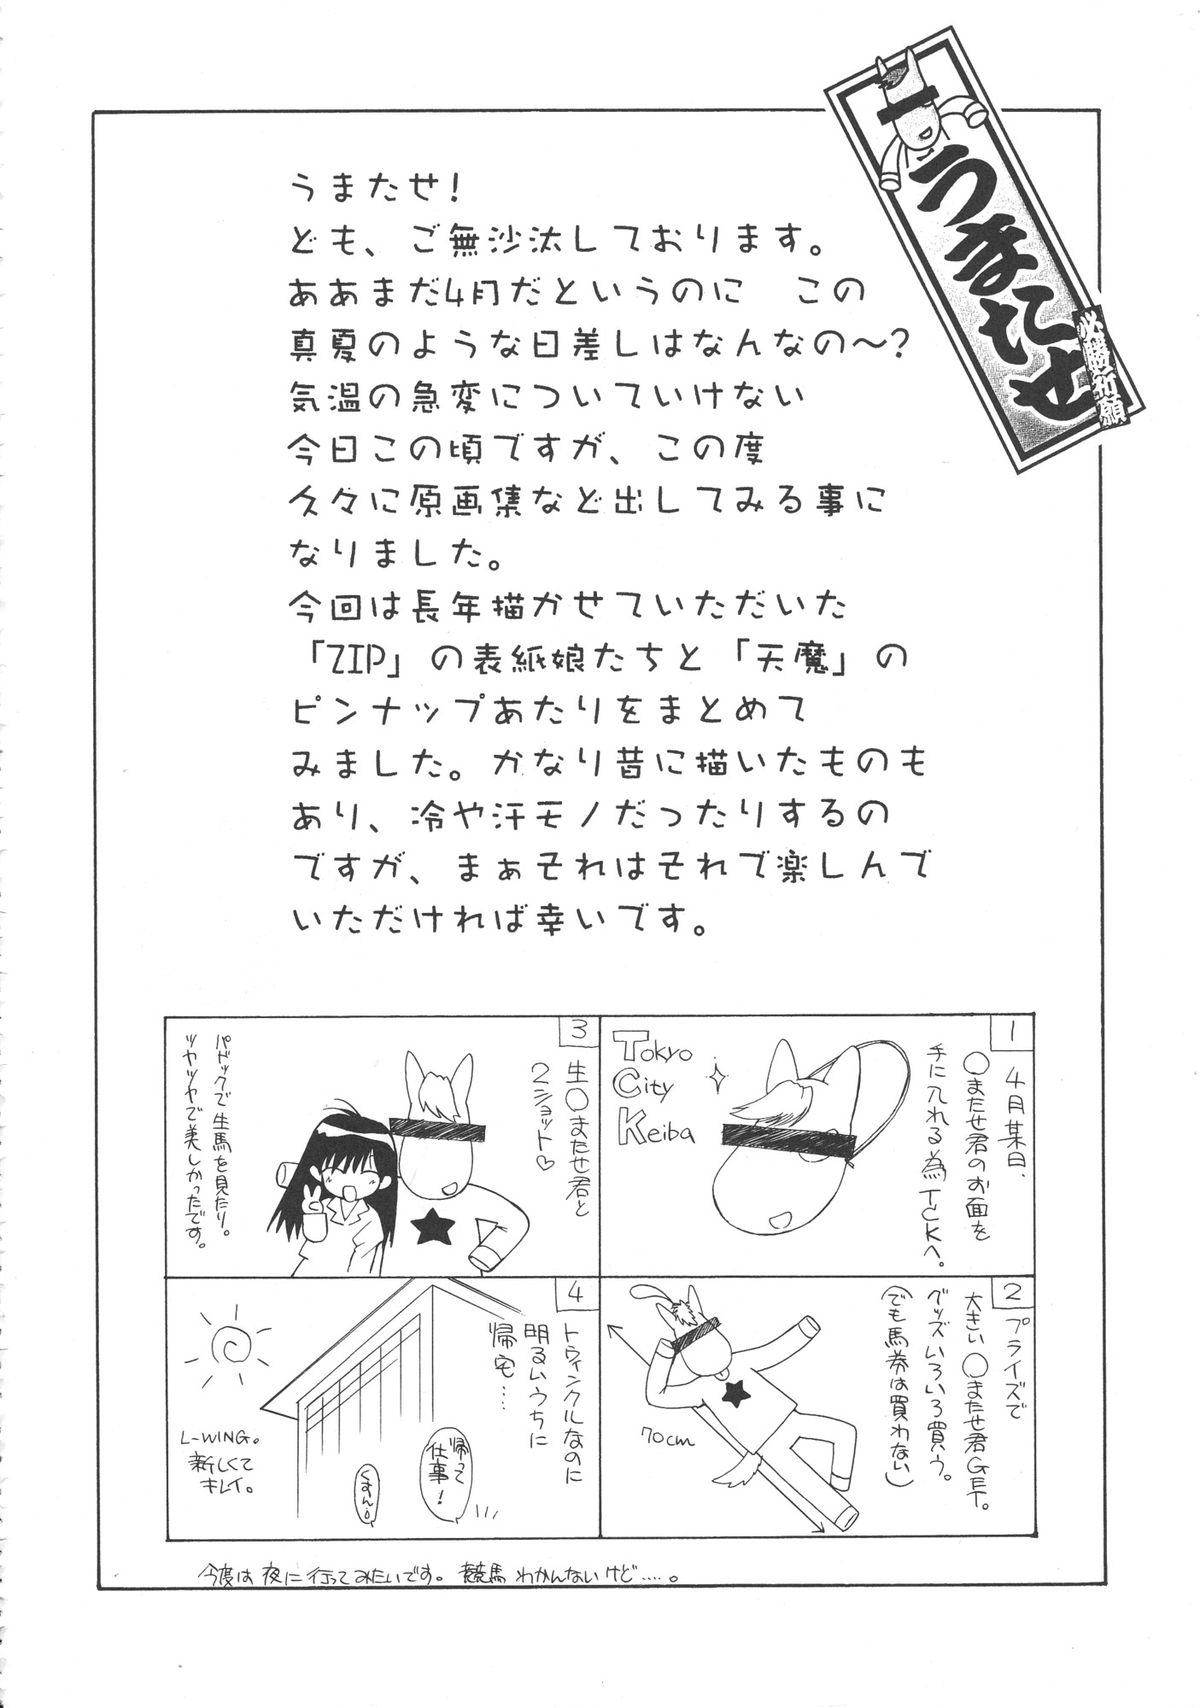 うまたせ
必勝祈願
うまたせ！
ども、ご無沙汰しております。
ああまだ4月だというのに　この
真夏のような日差しはなんなの〜？
気温の急変についていけない
今日この頃ですが、この度
久々に原画集など出してみる事に
なりました。
今回は長年描かせていただいた
「ZIP」の表紙娘たちと「天魔」の
ピンナップあたりをまとめて
みました。かなり昔に描いたものも
あり、冷や汗モノだったりするの
ですが、まぁそれはそれで楽しんで
いただければ幸いです。
1
4月某日、
〇またせ君のお面を
手に入れる為TCKへ。
Tokyo
City
Keiba
2
プライズで
大きい〇またせ君GET。
グッズいろいろ買う。
(でも馬券は買わない)
70cm
3
生〇またせ君と
2ショット♡
パドックで生馬を見たり。
ツヤツヤで美しかったです。
4
トゥインクルなのに
明るいうちに
帰宅…
帰って
仕事！
くすん。
L-WING。
新しくて
キレイ。
今度は夜に行ってみたいです。競馬わかんないけど……。